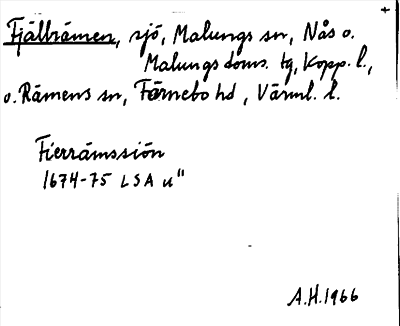 +
Fjällrämen, sjö, Malungs sn, Nås o.
Malungs doms. tg, Kopp. l.,
o. Rämens sn, Färnebo hd, Värml. l.
Fierrämssiön
1674-75 LSA u"
A.H. 1966